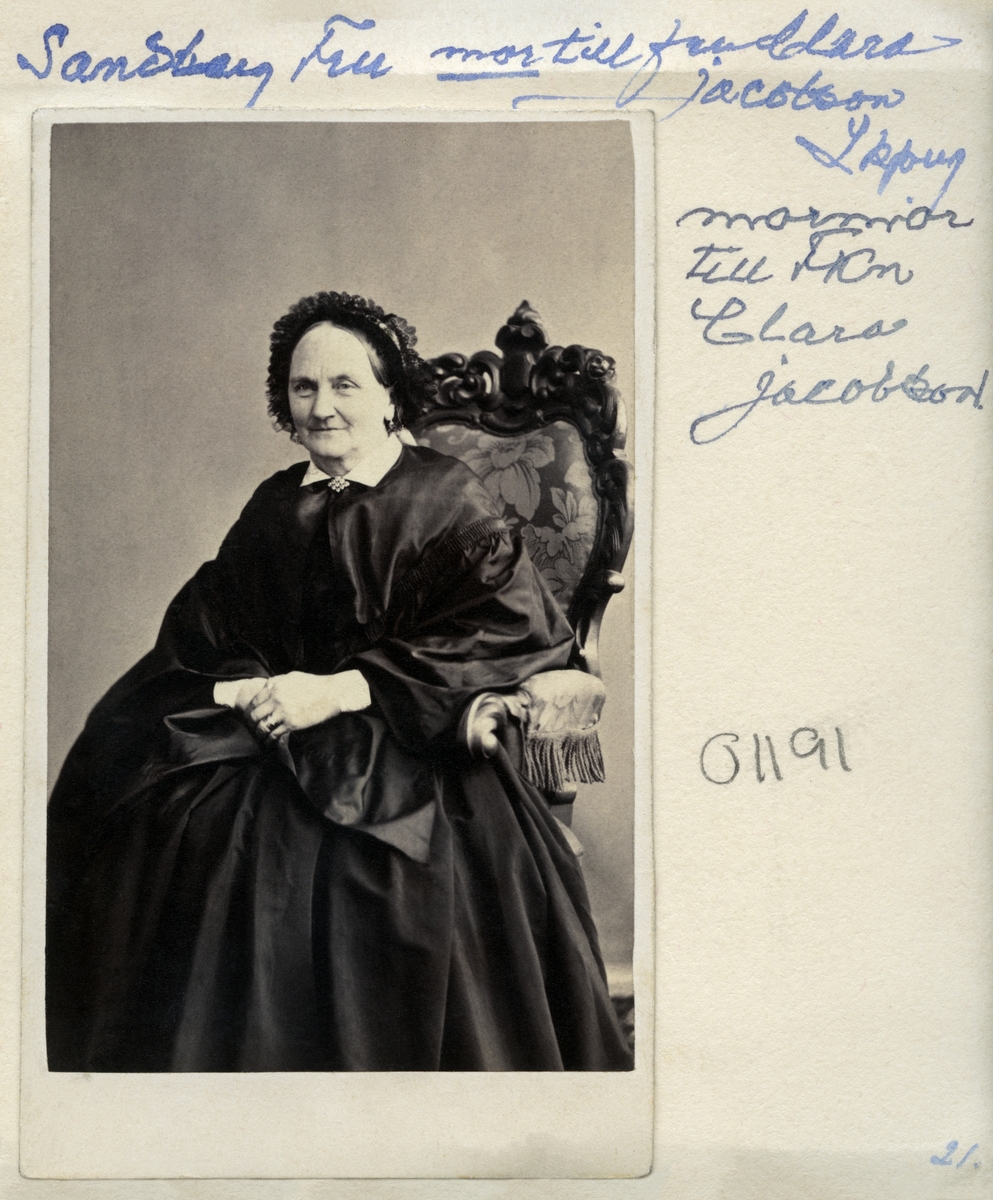 Sandberg Fru mor till fru Clara
Jacobson
Lkpng
mormor
till Frkn
Clara
Jacobson.
01191
21.